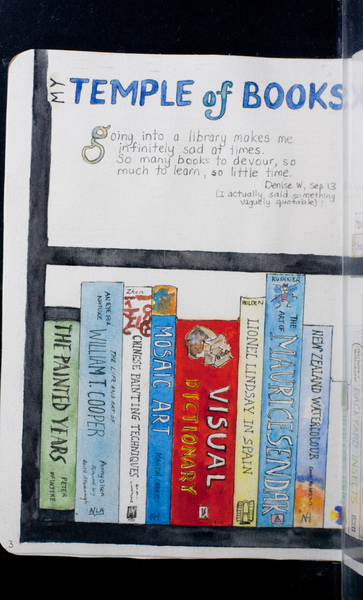 MY TEMPLE of BOOKS
Going into a library makes me
infinitely sad at times.
So many books to devour, so
much to learn, so little time.
Denise W, sep 13
(I actually said something
vaguely quotable)!
THE PAINTED YEARS PETER
AN EYE FOR NATURE
THE LIFE AND ART OF
WILLIAM T. COOPER
NLA
Zhen
CHINESE PAINTING TECHNIQUES
MOSAIC ART
VISUAL
DICTIONARY
HOLDEN
LIONEL LINDSAY IN SPAIN
KUSHNER
THE ART OF
MAURICE SENDAK
NEW ZEALAND WATERCOLOUR
3